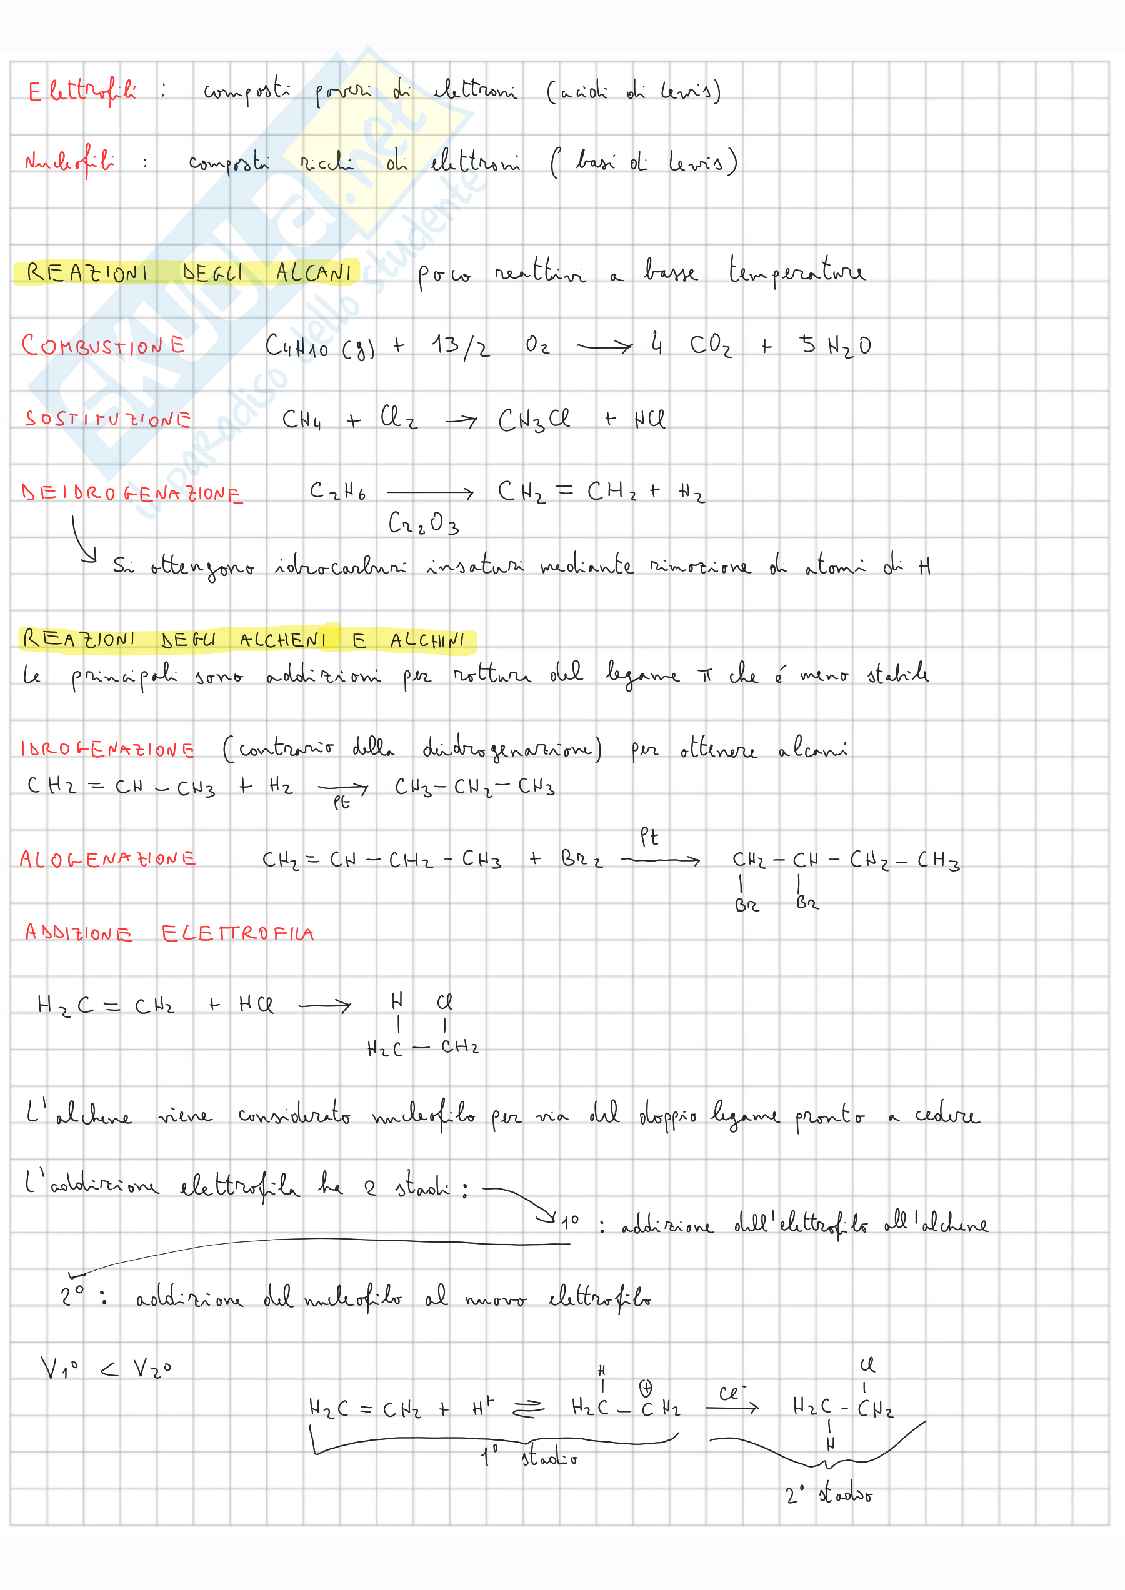 Elettrofili : composti poveri di elettroni (acidi di Lewis)
Nucleofili : composti ricchi di elettroni (basi di Lewis)
REAZIONI DEGLI ALCANI poco reattivi a basse temperature
COMBUSTIONE C4H10 (g) + 13/2 O2 → 4 CO2 + 5 H2O
SOSTITUZIONE CH4 + Cl2 → CH3Cl + HCl
DEIDROGENAZIONE C2H6 → CH2 = CH2 + H2
Cr2O3
Si ottengono idrocarburi insaturi mediante rimozione di atomi di H
REAZIONI DEGLI ALCHENI E ALCHINI
Le principali sono addizioni per rottura del legame π che é meno stabile
IDROGENAZIONE (contrario della deidrogenazione) per ottenere alcani
CH2 = CH - CH3 + H2 → CH3 - CH2 - CH3
Pt
ALOGENAZIONE CH2 = CH - CH2 - CH3 + Br2 → CH2 - CH - CH2 - CH3
Pt
Br Br
ADDIZIONE ELETTROFILA
H Cl
H2C = CH2 + HCl →
H2C - CH2
L'alchene viene considerato nucleofilo per via del doppio legame pronto a cedere
L'addizione elettrofila ha 2 stadi :
1° : addizione dell'elettrofilo all'alchene
2° : addizione del nucleofilo al nuovo elettrofilo
V1° < V2°
H ⊕ Cl
H2C = CH2 + H+ ⇌ H2C - CH2 → H2C - CH2
Cl-
H
1° stadio
2° stadio
SKUOLA.net
il paradiso dello studente